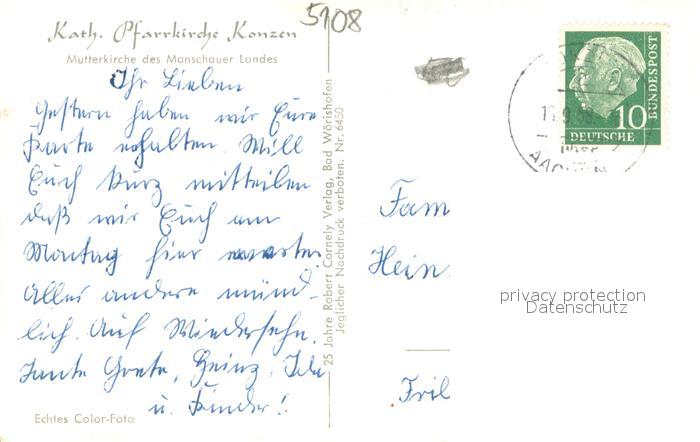 5108
Kath. Pfarrkirche Konzen
Mutterkirche des Monschauer Landes
Ihr Lieben
Gestern haben wir Eure
Karte erhalten. Will
Euch kurz mitteilen
daß wir Euch am
Montag hier erwarten.
Alles andere münd-
lich. Auf Wiedersehn.
Tante Grete, Heinz, Ida
u. Kinder!
Echtes Color-Foto
25 Jahre Robert Cornely Verlag, Bad Wörishofen
Jeglicher Nachdruck verboten. Nr. 6450
BUNDESPOST
10
DEUTSCHE
über
AACHEN
Fam
Hein
privacy protection
Datenschutz